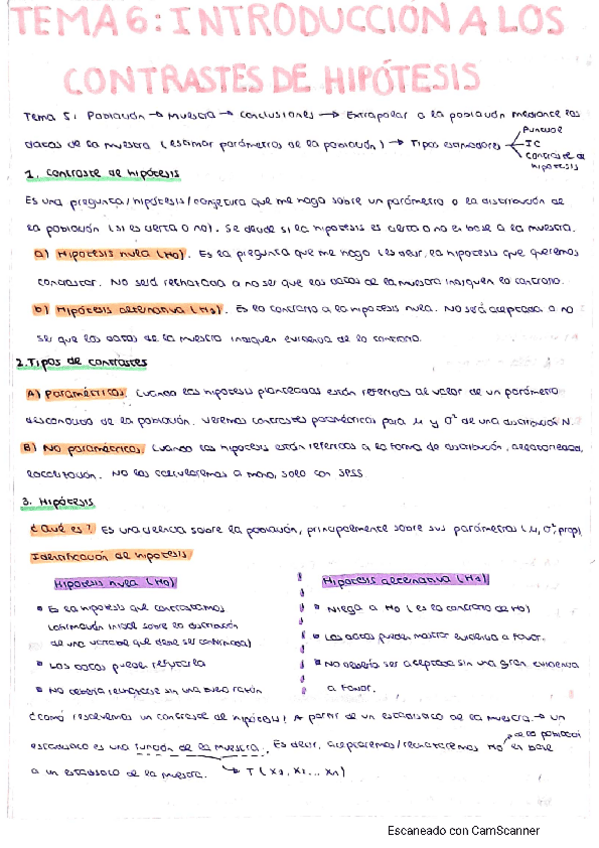 TEMA 6: INTRODUCCION A LOS
CONTRASTES DE HIPÓTESIS
Tema 5: Población → Muestra → Conclusiones → Extrapolar a la población mediante los
datos de la muestra (estimar parámetros de la población) → Tipos estimadores
Puntual
IC
Contraste de hipótesis
1. Contraste de hipótesis
Es una pregunta/hipótesis/conjetura que me hago sobre un parámetro o la distribución de
la población (si es cierta o no). Se decide si la hipótesis es cierta o no en base a la muestra.
a) Hipótesis nula (H0). Es la pregunta que me hago (es decir, la hipótesis que queremos
contrastar. No será rechazada a no ser que los datos de la muestra indiquen lo contrario.
b) Hipótesis alternativa (H1). Es lo contrario a la hipótesis nula. No será aceptada a no
ser que los datos de la muestra indiquen evidencia de lo contrario.
2. Tipos de contrastes
A) Paramétricos. Cuando las hipótesis planteadas están referidas al valor de un parámetro
desconocido de la población. Veremos contrastes paramétricos para μ y σ² de una distribución N.
B) No paramétricos. Cuando las hipótesis están referidas a la forma de distribución, aleatoriedad,
localización. No las calcularemos a mano, solo con SPSS
3. Hipótesis
¿Qué es? Es una creencia sobre la población, principalmente sobre sus parámetros (μ, σ², prop)
Identificación de hipótesis
Hipótesis nula (H0)
• Es la hipótesis que contrastamos
(afirmación inicial sobre la distribución
de una variable que debe ser confirmada)
• Los datos pueden refutarla
• No debería rechazarse sin una buena razón
Hipótesis alternativa (H1)
• Niega a H0 (es lo contrario de H0)
• Los datos pueden mostrar evidencia a favor.
• No debería ser aceptada sin una gran evidencia
a favor.
¿Cómo resolvemos un contraste de hipótesis? A partir de un estadístico de la muestra → un
estadístico es una función de la muestra. Es decir, aceptaremos/rechazaremos H0 en base
de la población
a un estadístico de la muestra. → T (x1, x2 ... xn)
Escaneado con CamScanner